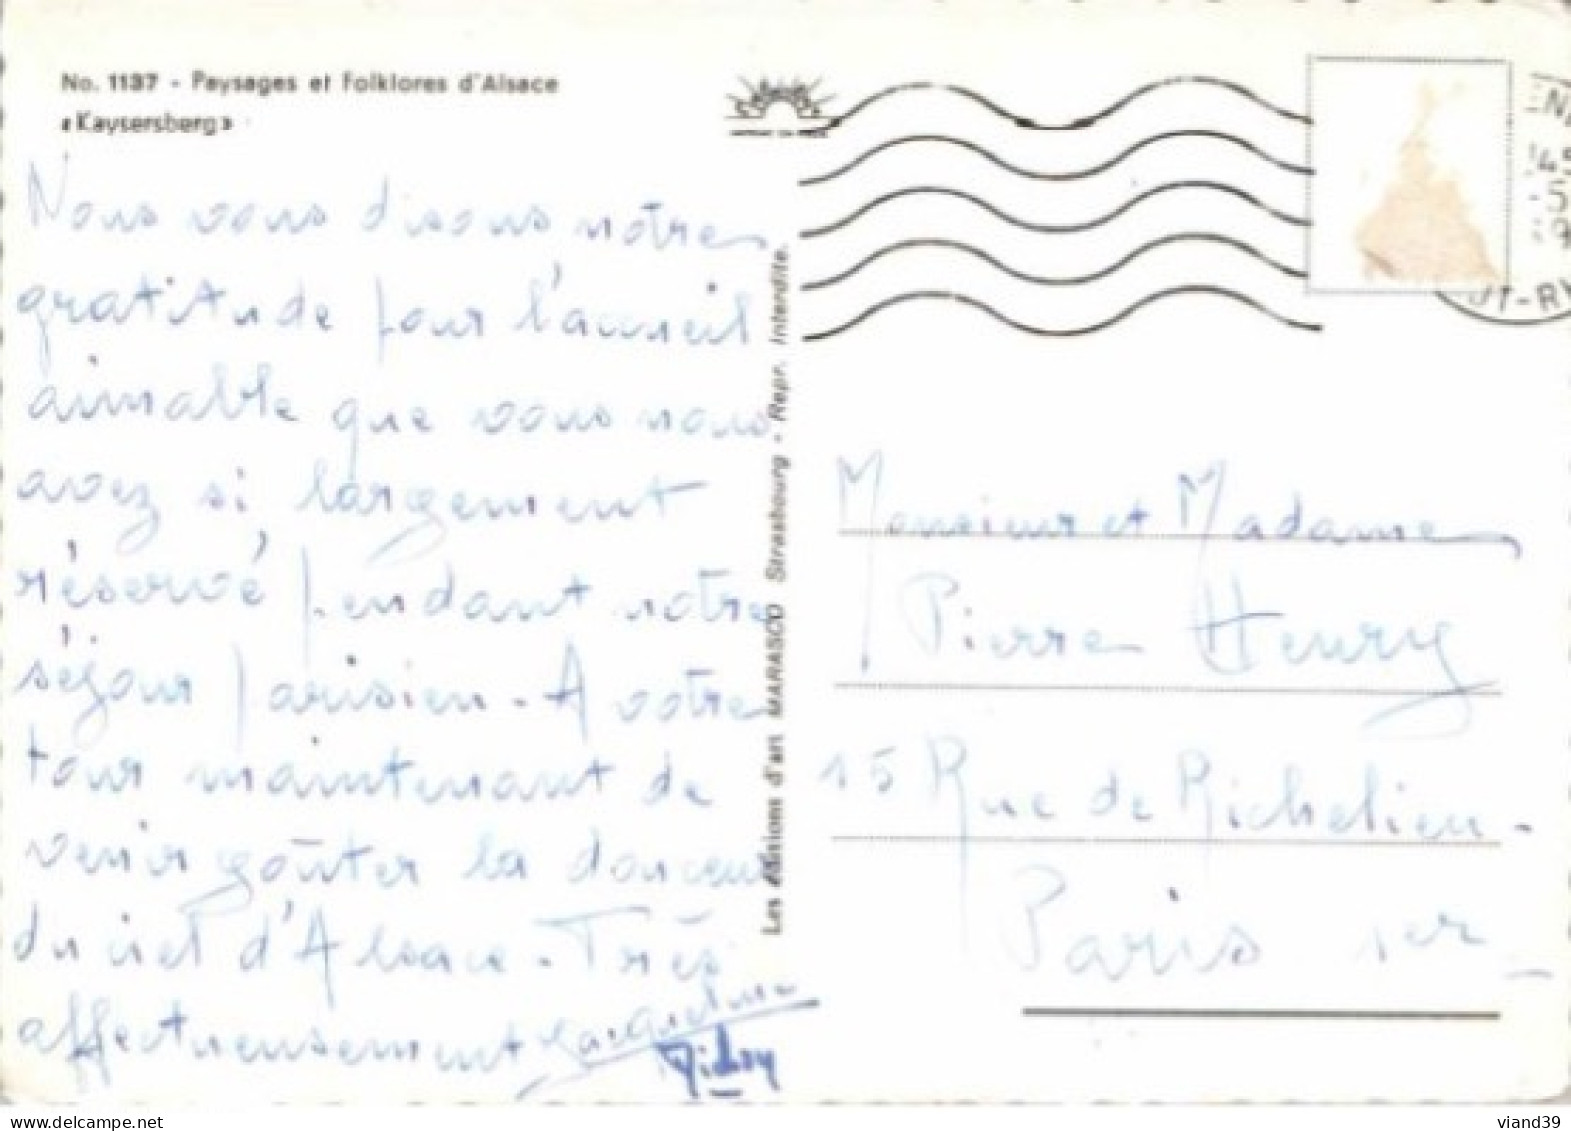 No. 1137 - Paysages et Folklores d'Alsace
«Kaysersberg»
Nous vous disons notre
gratitude pour l'accueil
aimable que vous nous
avez si largement
réservé pendant notre
séjour parisien - A votre
tour maintenant de
venir goûter la douceur
du ciel d'Alsace - Très
affectueusement Jacqueline
Les éditions d'art MARASCO Strasbourg - Repr. Interdite.
Monsieur et Madame
Pierre Henry
15 Rue de Richelieu -
Paris 1er
viand39